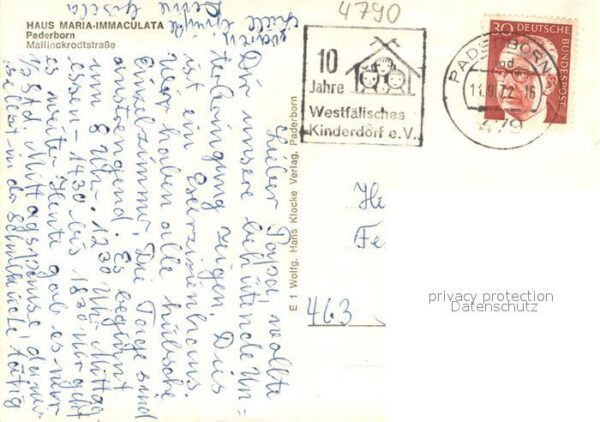 HAUS MARIA-IMMACULATA
Paderborn
Mallinckrodtstraße
4790
10
Jahre
Westfälisches
Kinderdorf e.V.
PADERBORN
11.9.72-16
479
30 DEUTSCHE BUNDESPOST
E 1 Wolfg. Hans Klocke Verlag, Paderborn
Lieber Papa, wollte
Dir unsere
terbringung zeigen. Dies
ist ein Exerzitienhaus.
Wir haben alle hübsche
Einzelzimmer. Die Tage sind
anstrengend. Es beginnt
um 8 Uhr - 12.30 Uhr Mittag-
essen - 14.30 bis 18.30 Uhr geht
es weiter. Heute gab es nur
1/2 Std. Mittagspause, da wir
selbst in der tätig
waren
Deine Gisela
463
privacy protection
Datenschutz